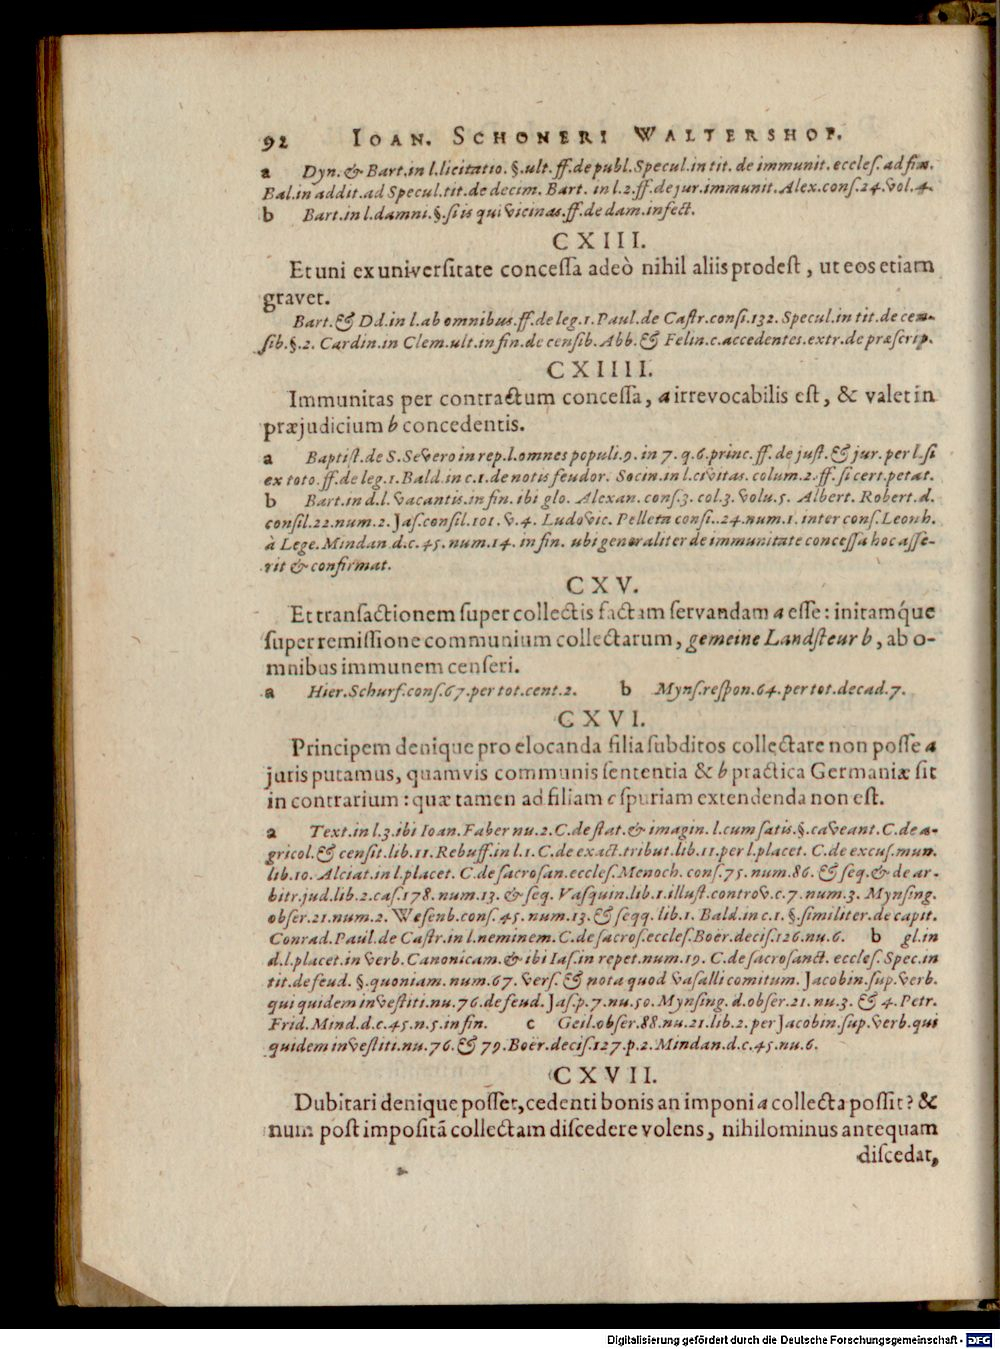 92 IOAN. SCHONERI WALTERSHOF.
a Dyn. & Bart. in l. licitatio. §. ult. ff. de publ. Specul. in tit. de immunit. eccles. ad fin.
Bal. in addit. ad Specul. tit. de decim. Bart. in l. 2. ff. de jur. immunit. Alex. cons. 24. vol. 4.
b Bart. in l. damni. §. si is qui vicinas. ff. de dam. infect.
CXIII.
Et uni ex universitate concessa adeò nihil aliis prodest, ut eos etiam
gravet.
Bart. & Dd. in l. ab omnibus. ff. de leg. 1. Paul. de Castr. consi. 132. Specul. in tit. de cen-
sib. §. 2. Cardin. in Clem. ult. in fin. de censib. Abb. & Felin. c. accedentes. extr. de præscrip.
CXIIII.
Immunitas per contractum concessa, a irrevocabilis est, & valet in
præjudicium b concedentis.
a Baptist. de S. Severo in rep. l. omnes populi. 9. in 7. q. 6. princ. ff. de just. & jur. per l. si
ex toto. ff. de leg. 1. Bald. in c. 1. de notis feudor. Socin. in l. civitas. colum. 2. ff. si cert. petat.
b Bart. in d. l. vacantis. in fin. ibi glo. Alexan. cons. 3. col. 3. volu. 5. Albert. Robert. d.
consil. 22. num. 2. Jas. consil. 101. v. 4. Ludovic. Pelleta consi.. 24. num. 1. inter cons. Leonh.
à Lege. Mindan. d. c. 45. num. 14. in fin. ubi generaliter de immunitate concessa hoc asse-
rit & confirmat.
CXV.
Et transactionem super collectis factam servandam a esse: initamq́ue
super remissione communium collectarum, gemeine Landsteur b, ab o-
mnibus immunem censeri.
a Hier. Schurf. cons. 67. per tot. cent. 2. b Myns. respon. 64. per tot. decad. 7.
CXVI.
Principem denique pro elocanda filia subditos collectare non posse a
juris putamus, quamvis communis sententia & b practica Germaniæ sit
in contrarium: quæ tamen ad filiam c spuriam extendenda non est.
a Text. in l. 3. ibi Ioan. Faber nu. 2. C. de stat. & imagin. l. cum satis. §. caveant. C. de a-
gricol. & censit. lib. 11. Rebuff. in l. 1. C. de exact. tribut. lib. 11. per l. placet. C. de excus. mun.
lib. 10. Alciat. in l. placet. C. de sacrosan. eccles. Menoch. cons. 75. num. 86. & seq. & de ar-
bitr. jud. lib. 2. cas. 178. num. 13. & seq. Vasquin. lib. 1. illust. controv. c. 7. num. 3. Mynsing.
obser. 21. num. 2. Wesenb. cons. 45. num. 13. & seqq. lib. 1. Bald. in c. 1. §. similiter. de capit.
Conrad. Paul. de Castr. in l. neminem. C. de sacros. eccles. Boër. decis. 126. nu. 6. b gl. in
d. l. placet. in verb. Canonicam. & ibi Ias. in repet. num. 19. C. de sacrosanct. eccles. Spec. in
tit. de feud. §. quoniam. num. 67. vers. & nota quod vasalli comitum. Jacobin. sup. verb.
qui quidem investiti. nu. 76. de feud. Jas. p. 7. nu. 50. Mynsing. d. obser. 21. nu. 3. & 4. Petr.
Frid. Mind. d. c. 45. n. 5. in fin. c Geil. obser. 88. nu. 21. lib. 2. per Jacobin. sup. verb. qui
quidem investiti. nu. 76. & 79. Boër. decis. 127. p. 2. Mindan. d. c. 45. nu. 6.
CXVII.
Dubitari denique posset, cedenti bonis an imponi a collecta possit? &
num post impositã collectam discedere volens, nihilominus antequam
discedat,
Digitalisierung gefördert durch die Deutsche Forschungsgemeinschaft - DFG